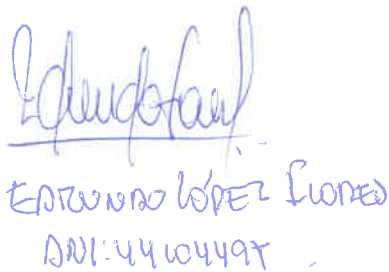 EDMUNDO LÓPEZ FLORES
DNI: 44104497